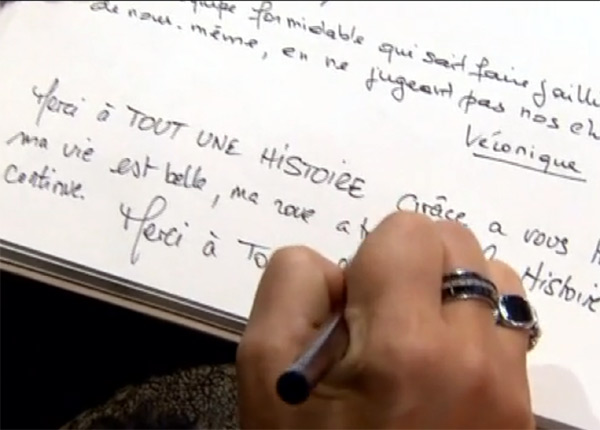 équipe formidable qui sait faire jaillir
de nous-même, en ne jugeant pas nos
Véronique
Merci à TOUT UNE HISTOIRE Grâce a vous
ma vie est belle, ma roue a Histoire
continue. Merci à